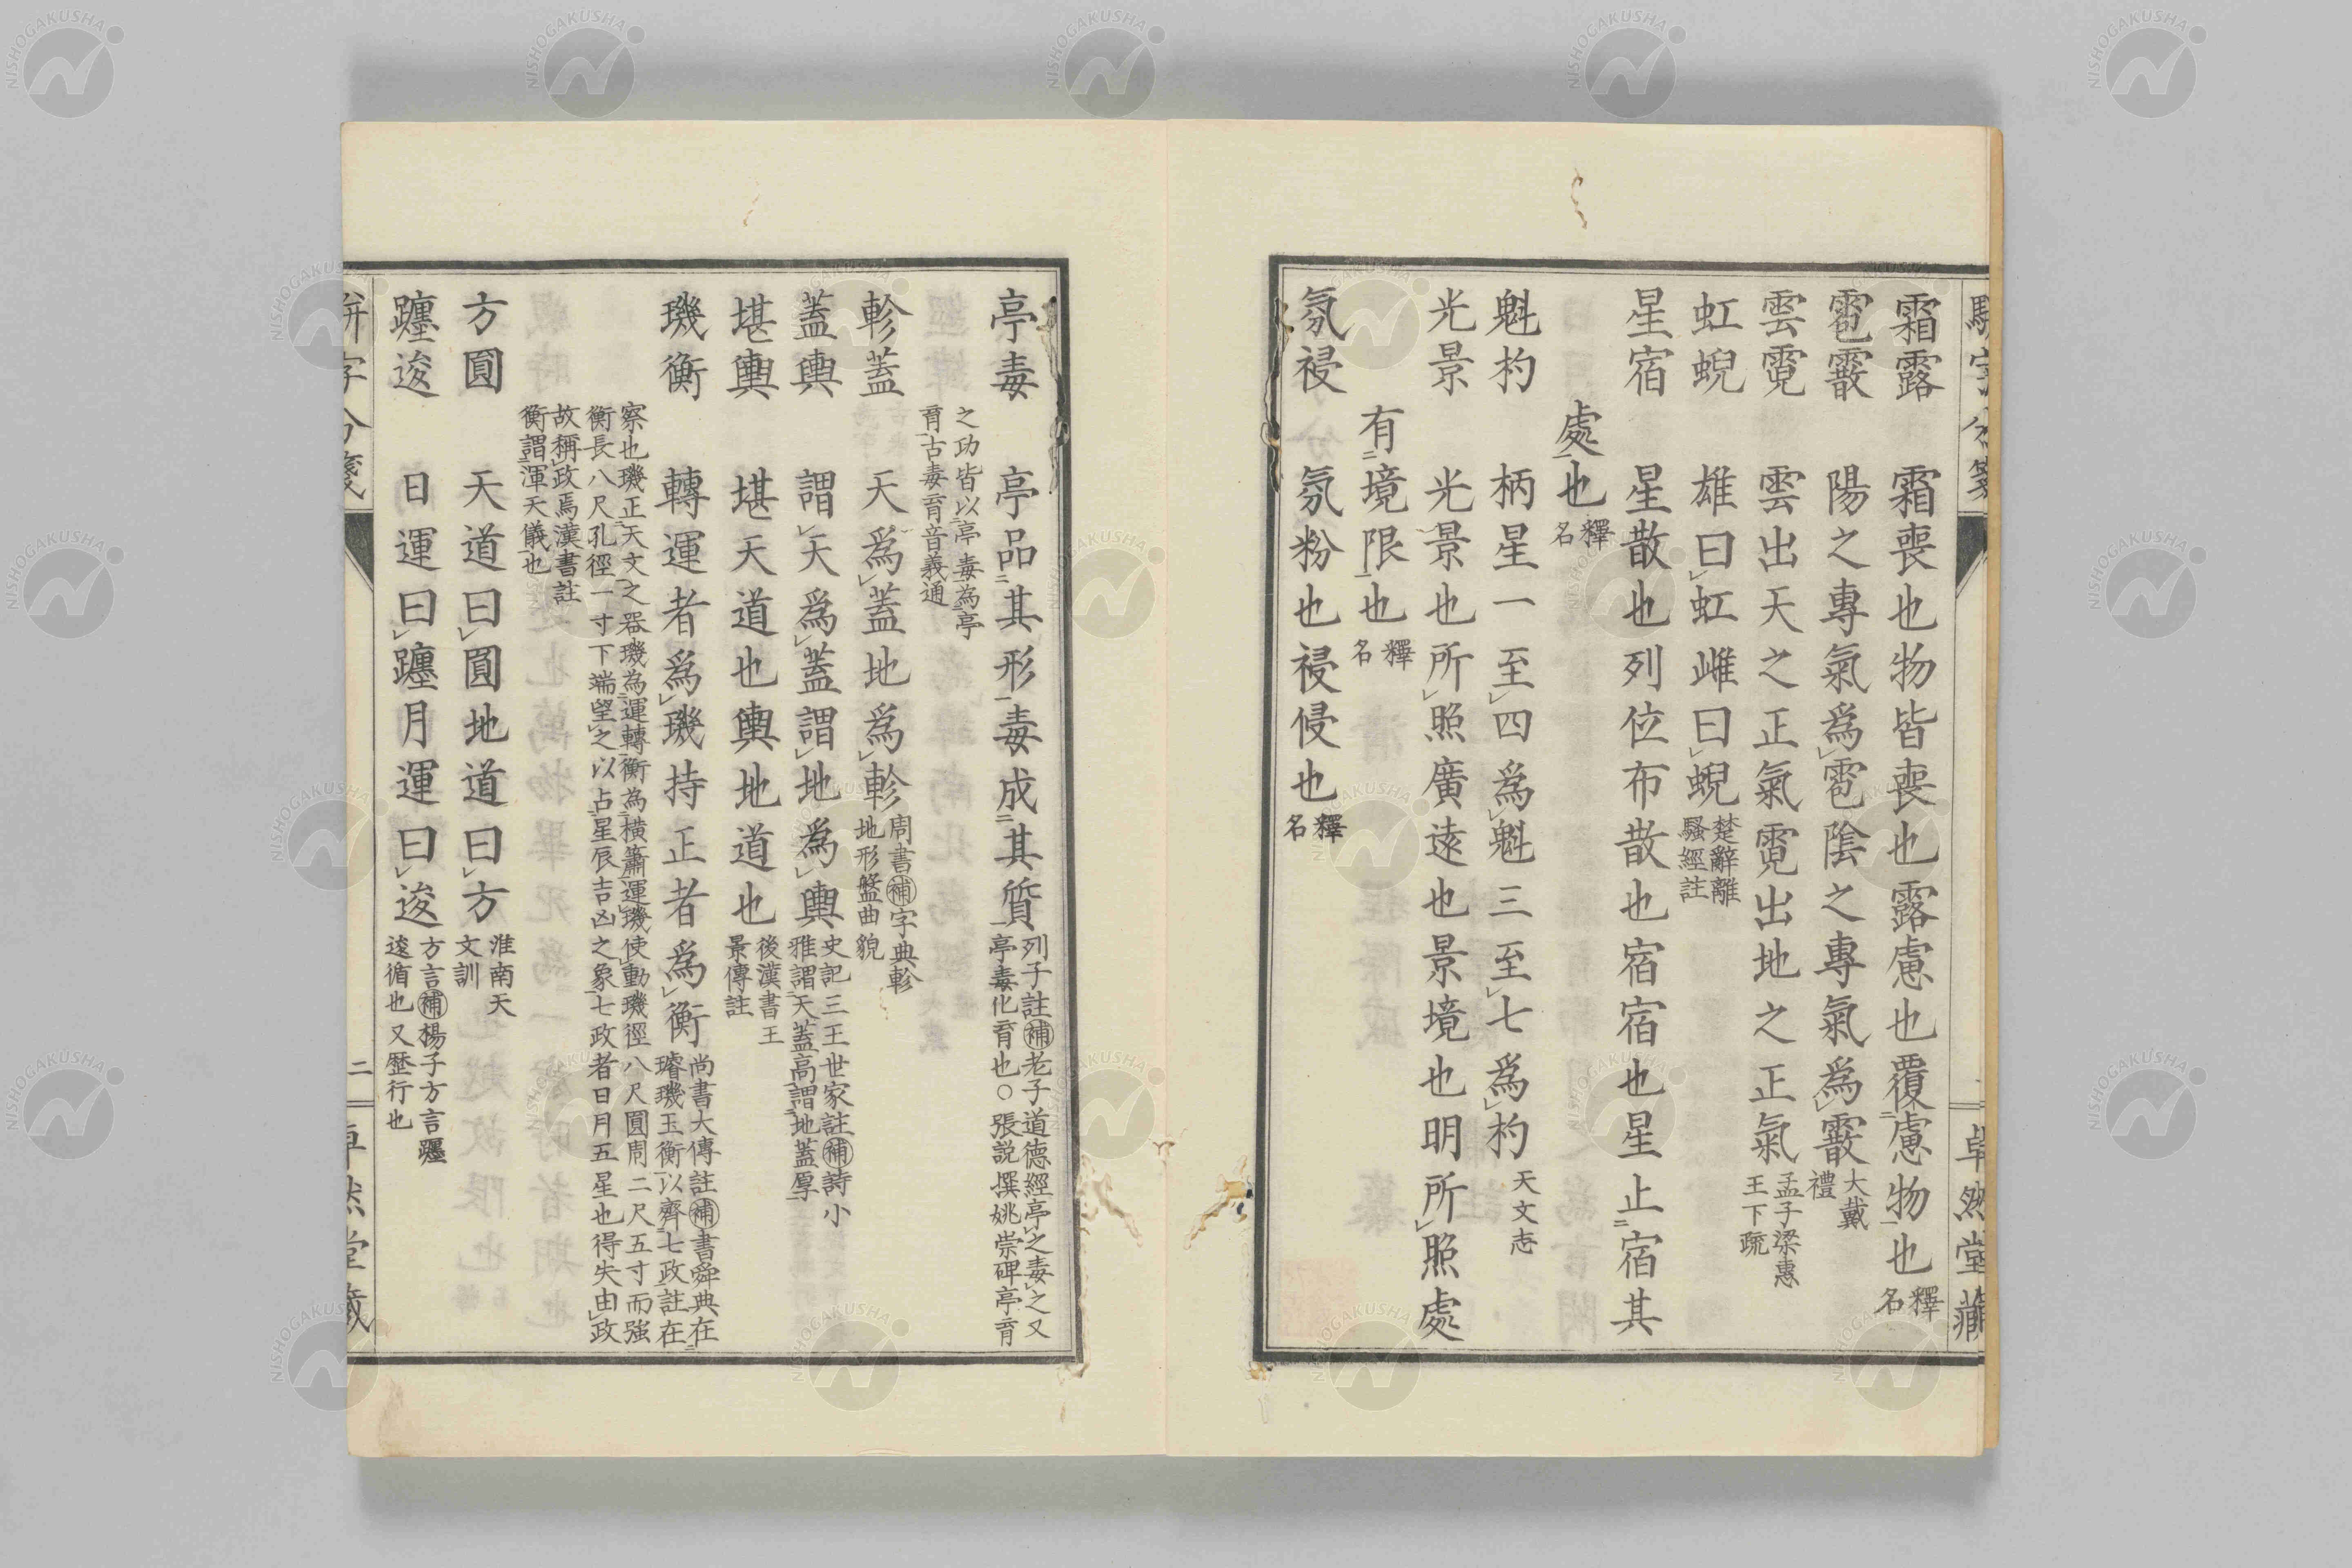 霜露　霜喪也物皆喪也露慮也覆慮物也釋名
雹霰　陽之專氣爲雹陰之專氣爲霰大戴禮
雲霓　雲出天之正氣霓出地之正氣孟子梁惠王下疏
虹蜺　雄曰虹雌曰蜺楚辭離騷經註
星宿　星散也列位布散也宿宿也星止宿其
處也釋名
魁杓　柄星一至四爲魁三至七爲杓天文志
光景　光景也所照廣遠也景境也明所照處
有境限也釋名
氛祲　氛粉也祲侵也釋名
亭毒　亭品其形毒成其質列子註補老子道德經亭之毒之又
亭毒化育也○張説撰姚崇碑亭育
之功皆以亭毒為亭
育古毒育音義通
軫蓋　天爲蓋地爲軫周書補字典軫
地形盤曲貌
蓋輿　謂天爲蓋謂地爲輿史記三王世家註補詩小
雅謂天蓋高謂地蓋厚
堪輿　堪天道也輿地道也後漢書王
景傳註
璣衡　轉運者爲璣持正者爲衡尚書大傳註補書舜典在
璿璣玉衡以齊七政註在
察也璣正天文之器璣為運轉衡為橫簫運璣使動璣徑八尺圓周二尺五寸而強
衡長八尺孔徑一寸下端望之以占星辰吉凶之象七政者日月五星也得失由政
故稱政焉漢書註
衡謂渾天儀也
方圓　天道曰圓地道曰方淮南天
文訓
躔逡　日運曰躔月運曰逡方言補楊子方言躔
逡循也又歷行也
二
NISHOGAKUSHA